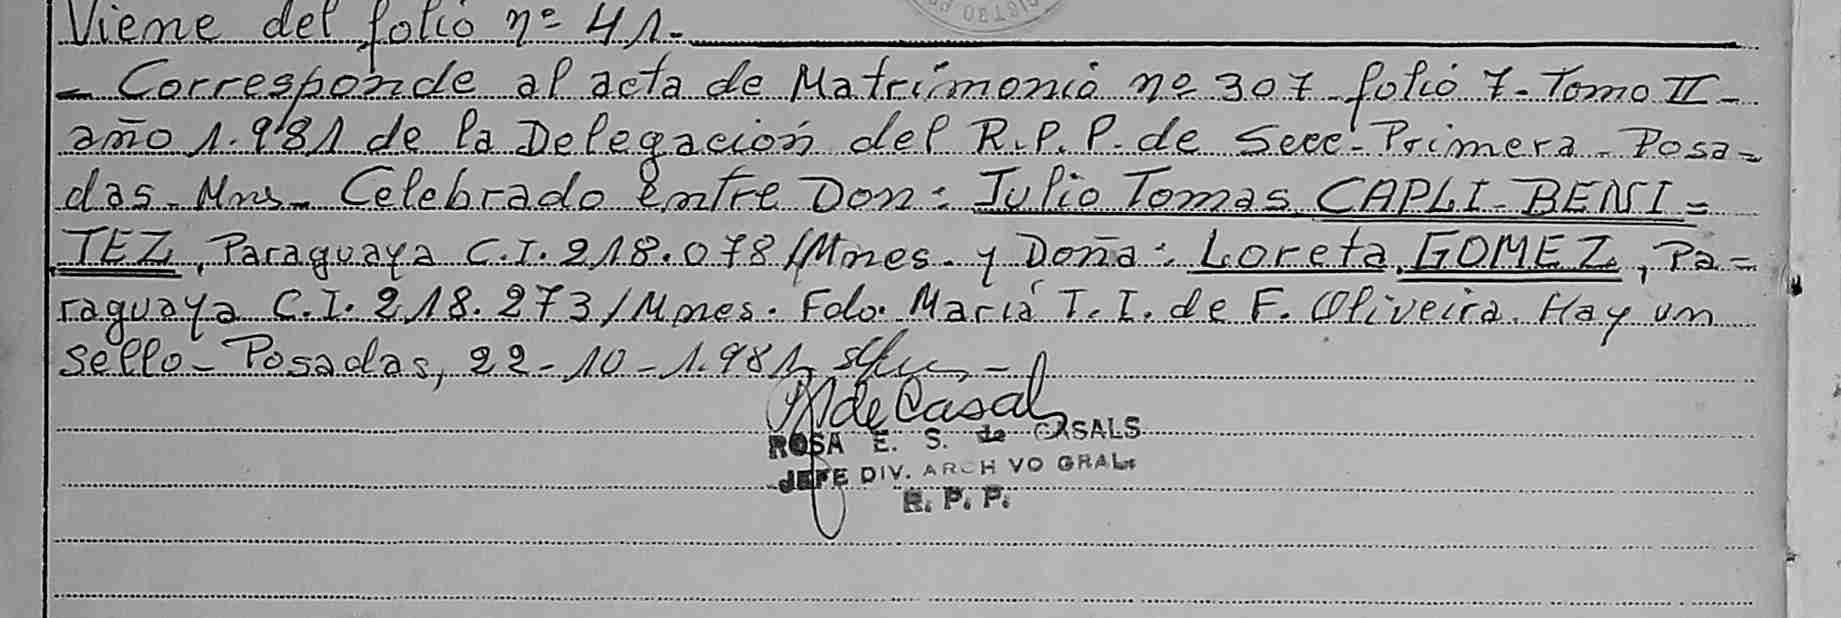 Viene del folio nº 41.-
- Corresponde al acta de Matrimonio nº 307 folio 7- Tomo II-
año 1.981 de la Delegación del R.P.P. de Secc- Primera- Posa=
das- Mns- Celebrado entre Don: Julio Tomas CAPLI- BENI=
TEZ, Paraguaya C.I. 218.078/Mnes. y Doña: Loreta GOMEZ, Pa=
raguaya C.I. 218.273/Mnes. Fdo. María T. I. de F. Oliveira. Hay un
sello- Posadas, 22-10-1.981
MdeCasals
ROSA E. S. de CASALS
JEFE DIV. ARCHIVO GRAL.
R. P. P.